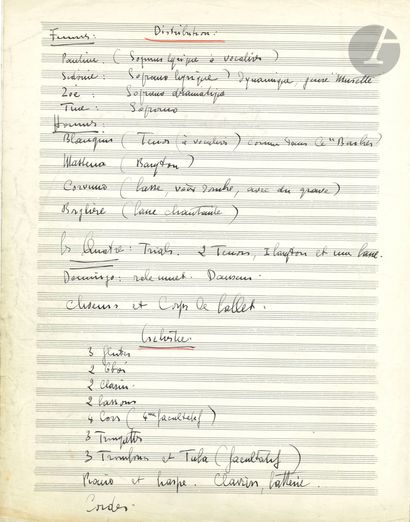 Distribution:
Femmes:
Pauline. (Soprano lyrique à vocalises)
Sidonie: Soprano lyrique) dynamique, genre "Musette"
Zoé: Soprano dramatique
Tine: Soprano
Hommes:
Blanquin (Tenor (à vocalises) comme dans le "Barbier"
(Baryton)
(basse, voix sombre, avec du grave)
(basse chantante)
les Quatre: Trials. 2 Tenors, 1 baryton et une basse.
Domingo: role muet. Danseur.
Choeurs et Corps de ballet.
Orchestre.
3 flutes
2 Obois
2 Clarin.
2 bassons
4 Cors (4eme facultatif)
3 Trompettes
3 Trombones et Tuba (facultatif)
Piano et harpe. Clavier, batterie.
Cordes.